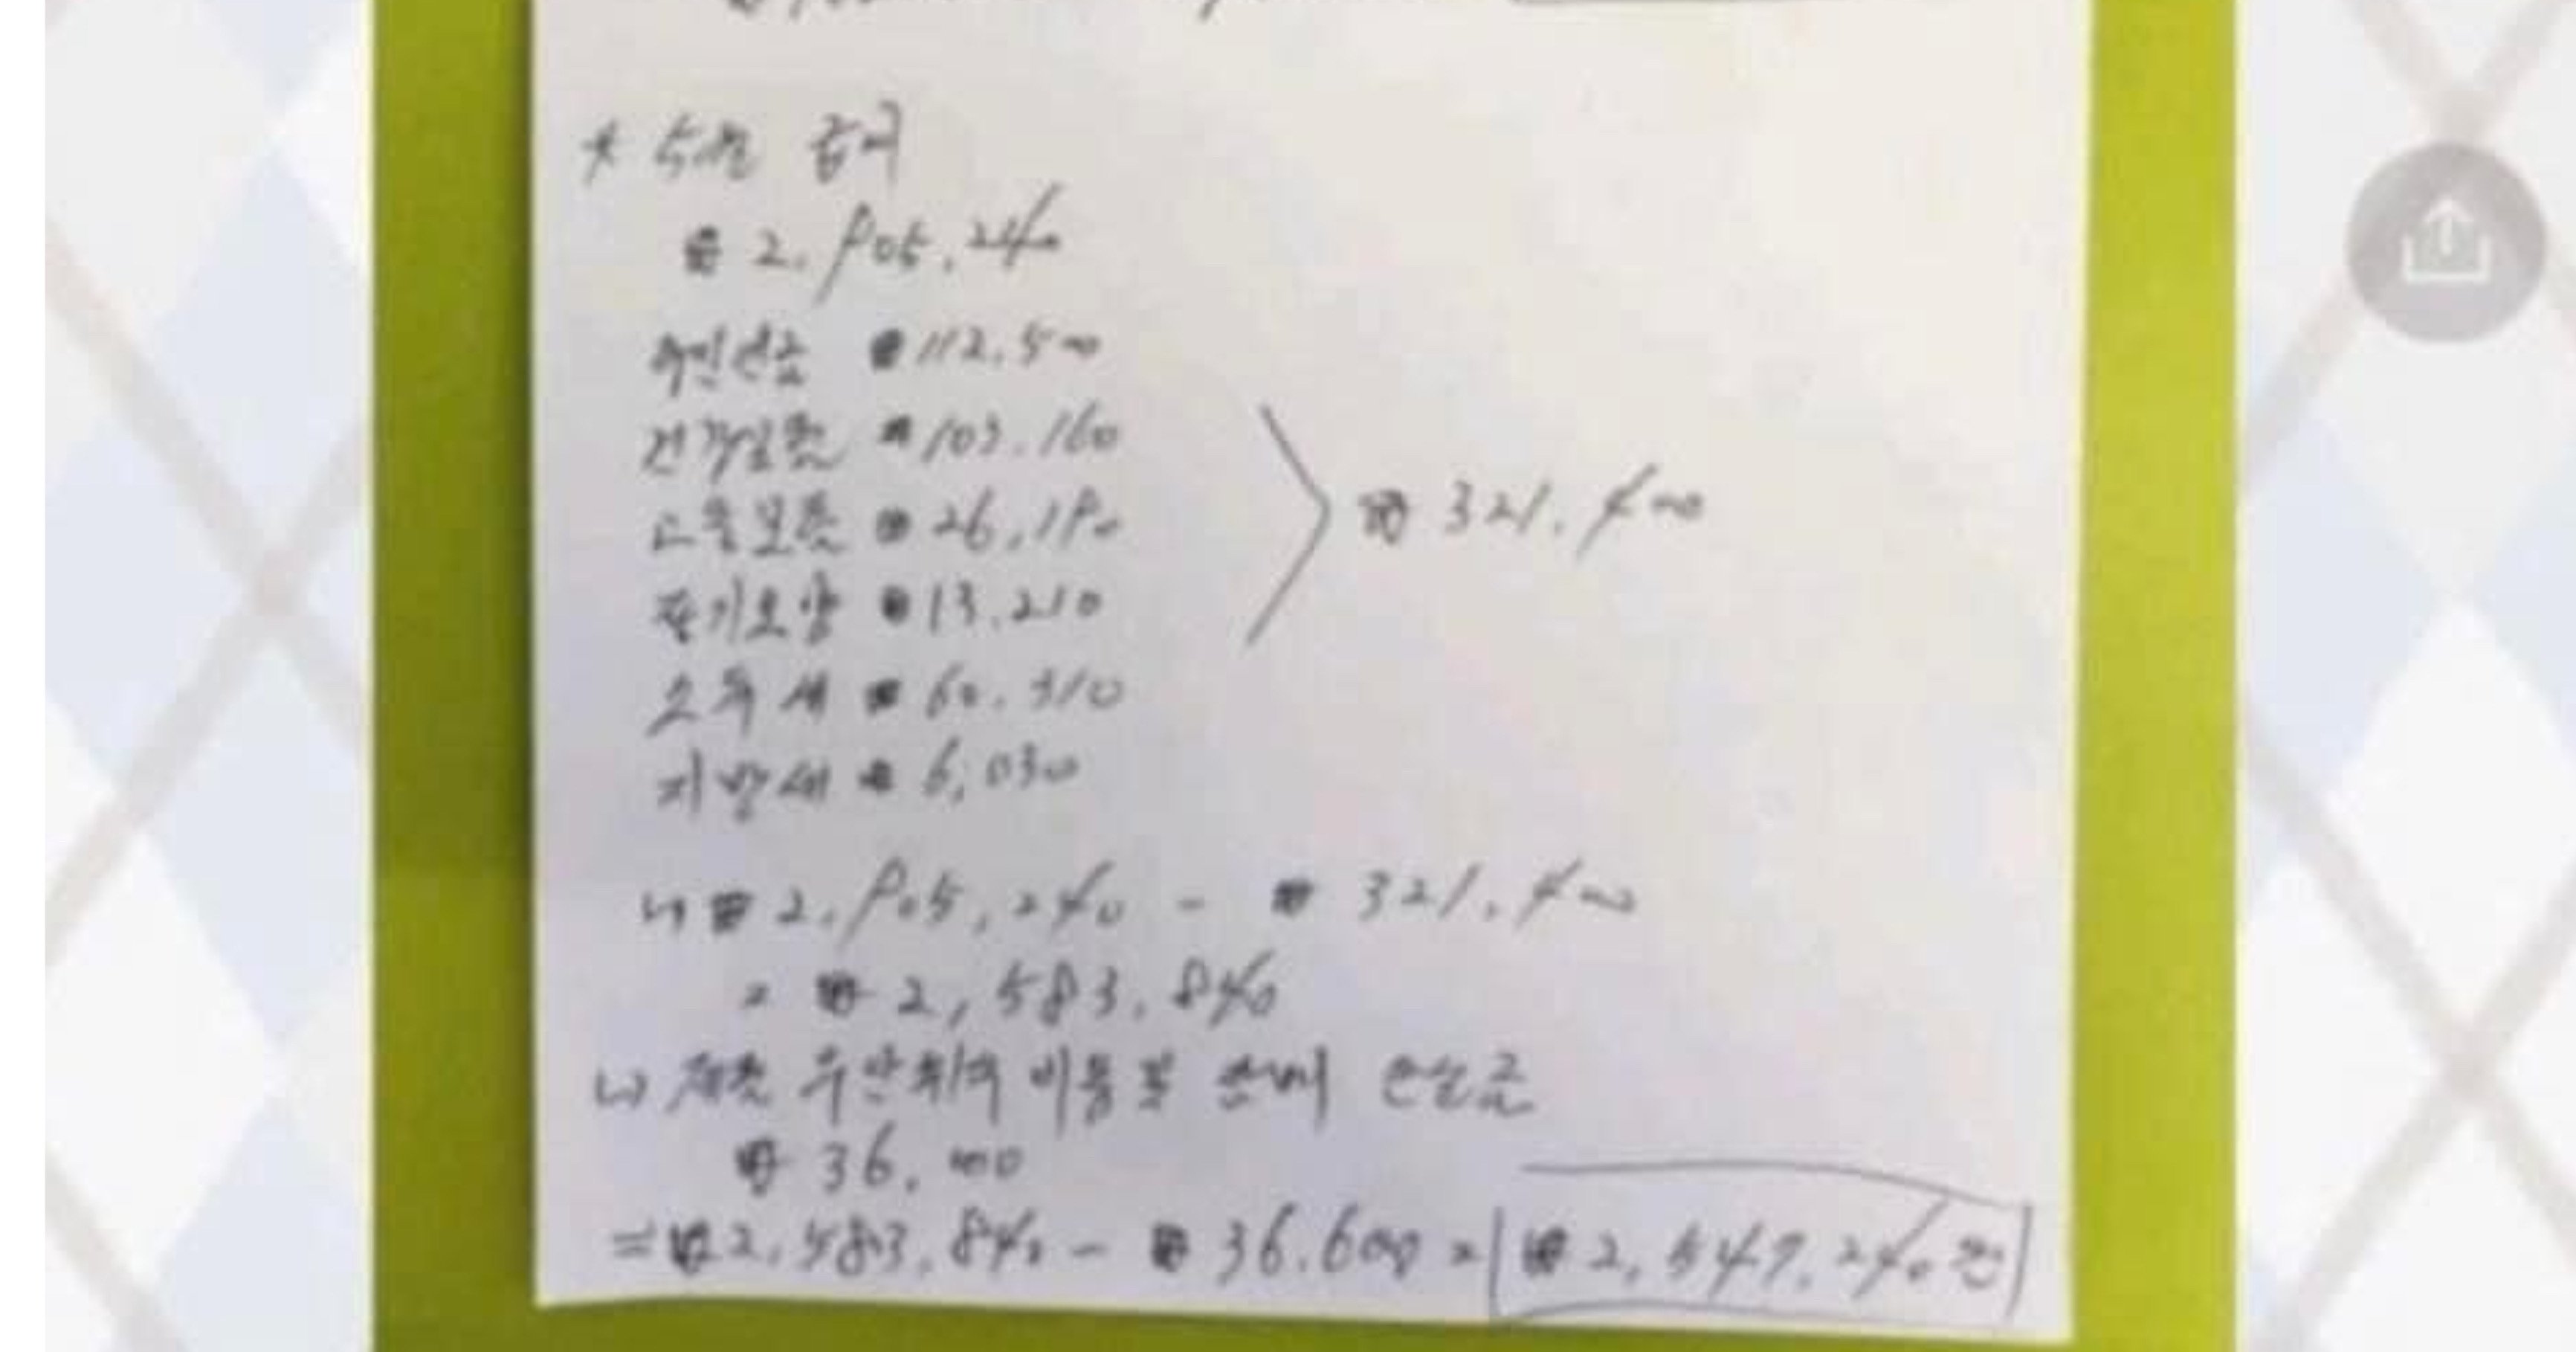 * 수령 급여
₩ 2,905,240
국민연금 ₩112,500
건강보험 ₩103,160
고용보험 ₩26,190
장기요양 ₩13,210
소득세 ₩60,310
지방세 ₩6,030
> ₩321,400
↳ ₩2,905,240 - ₩321,400
= ₩2,583,840
↳ 비용 및 손실금
₩36,
= ₩2,583,840 - ₩36,600 = ₩2,547,240원